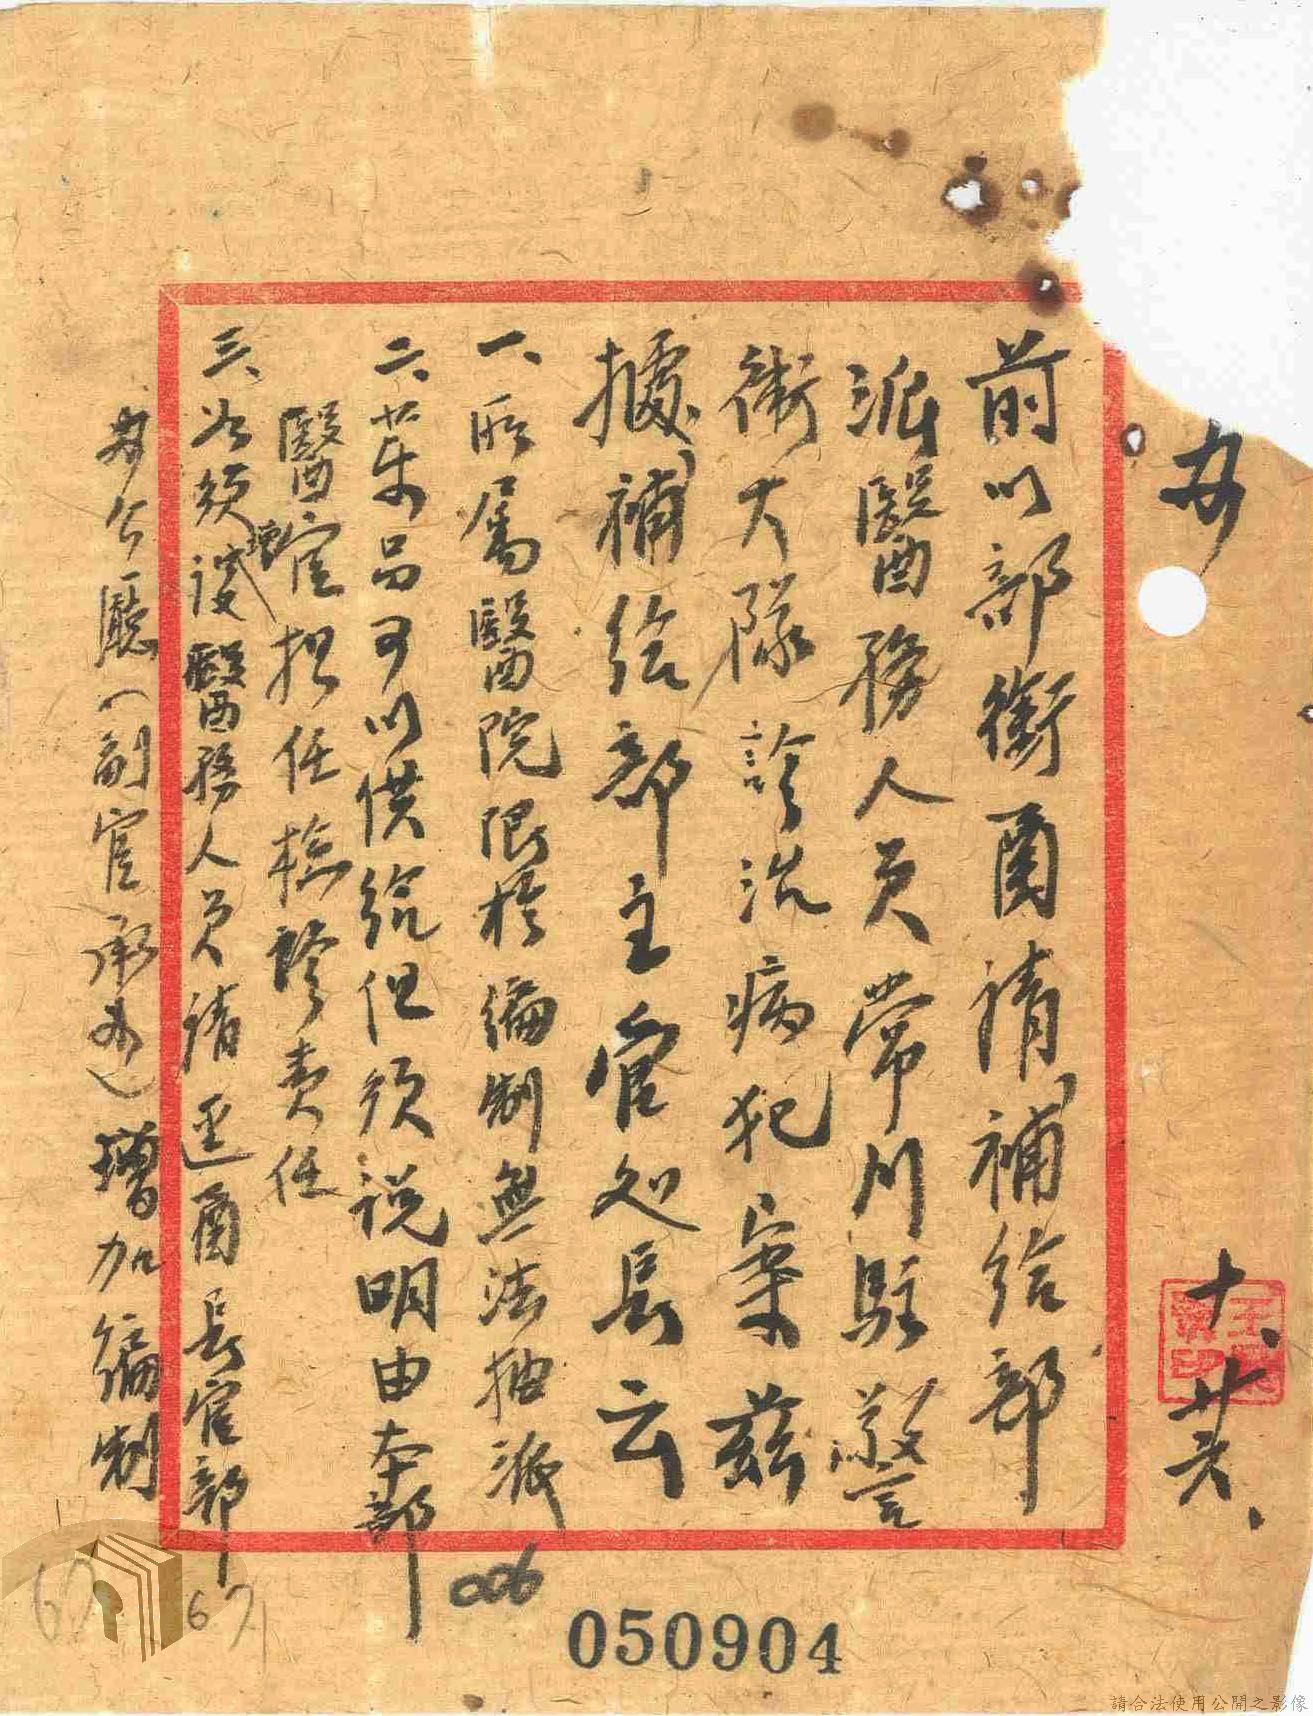 十、廿六、
前以部銜函請補給部
派醫務人員常川駐警
衛大隊診治病犯案茲
據補給部主官処長云
一、所屬醫院限於編制無法抽派
二、藥品可以供給但須說明由本部
醫官担任檢診責任
三、如須增設醫務人員請逕函長官部
辦公廳(副官承办)增加編制
006
050904
67
671
請合法使用公開之影像